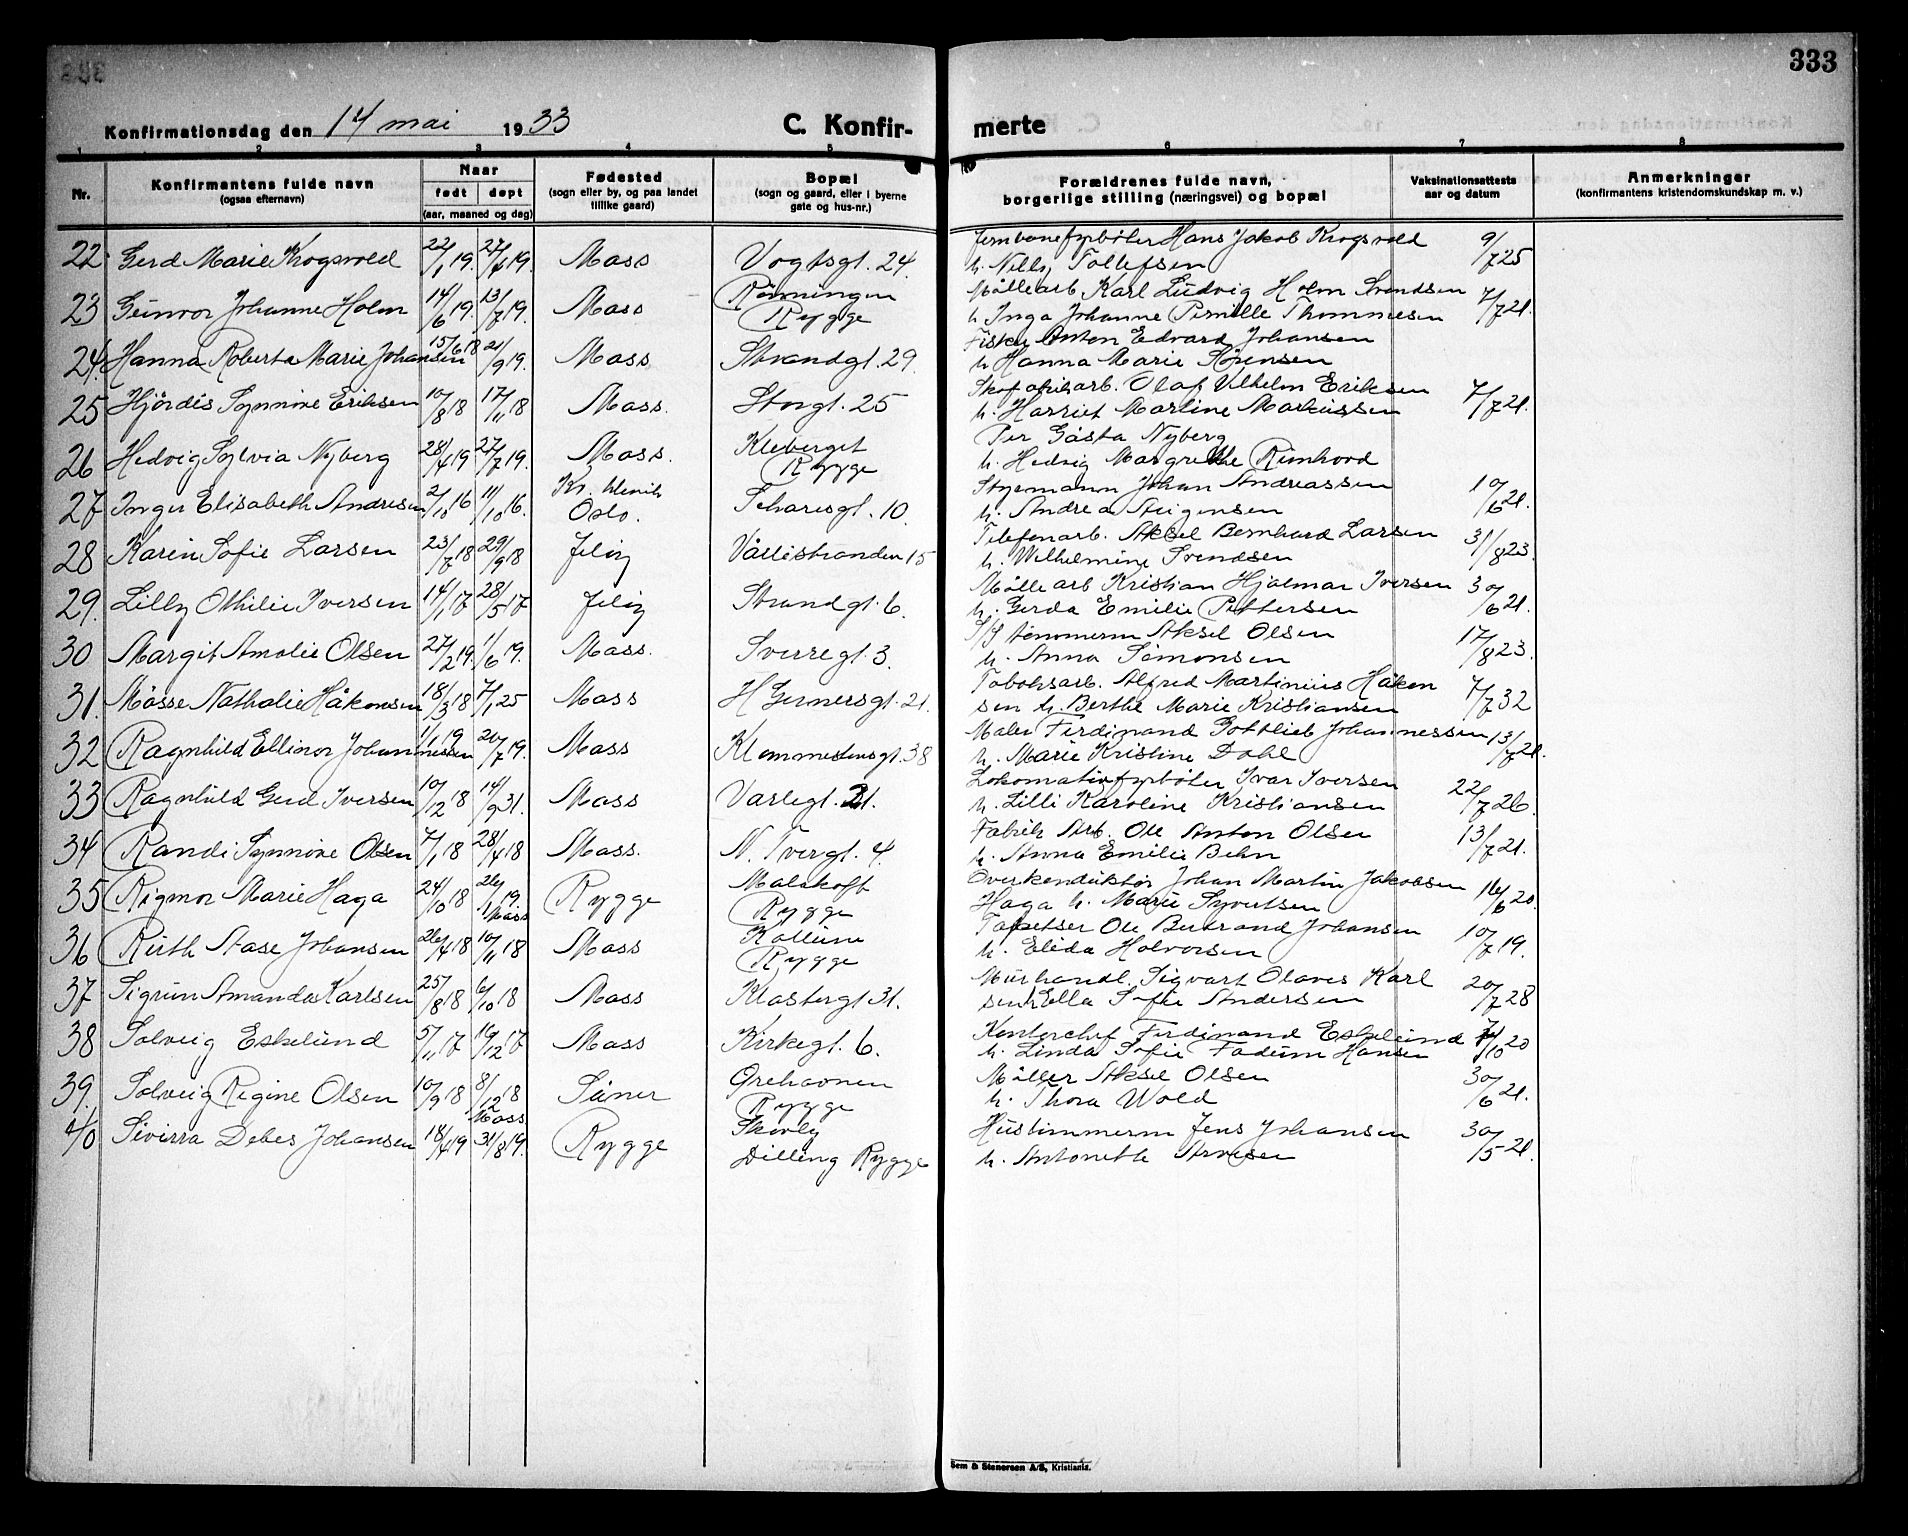 333
Konfirmationsdag den 14 mai 1933
C. Konfir- merte
1 2 3 4 5 6 7 8
Nr.
Konfirmantens fulde navn
(ogsaa efternavn)
Naar
født døpt
(aar, maaned og dag)
Fødested
(sogn eller by, og paa landet
tillike gaard)
Bopæl
(sogn og gaard, eller i byerne
gate og hus-nr.)
Forældrenes fulde navn,
borgerlige stilling (næringsvei) og bopæl
Vaksinationsattests
aar og datum
Anmerkninger
(konfirmantens kristendomskundskap m. v.)
22 Gerd Marie Krogsvold 22/1 19. 27/4 19. Moss Vogtsgt. 24. Jernbanefyrbøter Hans Jakob Krogsvold 9/7 25
h. Nelly Tollefsen
23 Gunvor Johanne Holm 14/6 19. 13/7 19. Moss Rønningen Rygge Møllearb Karl Ludvig Holm Svendsen 7/7 21.
h. Inga Johanne Pernille Thommesen
24. Hanna Roberta Marie Johansen 15/6 18 21/9 19. Moss. Strandgt. 29. Fisker Anton Edvard Johansen
h. Hanna Marie Sørensen
25 Hjördis Synnöve Eriksen 10/8 18 17/11 18 Moss. Storgt. 25 Skofabrikarb. Olaf Vilhelm Eriksen 7/7 21.
h. Harriet Martine Markussen
26 Hedvig Sylvia Nyberg 28/4 19 27/7 19. Moss. Kleberget Rygge Per Gösta Nyberg
h. Hedvig Margrethe Rimhord
27 Inger Elisabeth Andresen 2/10 16 11/10 16. Kr. Oslo. 10. Styrmann Johan Andreassen 10/6 21.
h. Andrea
28 Karin Sofie Larsen 23/7 18 29/9 18 Jeløy Värlestranden 15 Telefonarb. Aksel Bernhard Larsen 31/8 23.
h. Wilhelmine Svendsen
29. Lilly Othilie Iversen 14/1 17 28/5 17 Jeløy Strandgt. 6. Mølle arb Kristian Hjalmar Iversen 30/6 21.
h. Gerda Emilie Pettersen
30 Margit Amalie Olsen 27/2 19. 1/6 19. Moss. Sverregt. 3. Aksel Olsen 17/8 23.
h. Anna Simonsen
31. Mosse Nathalie Håkonsen 18/3 18 7/1 25 Moss H Gernersgt. 21. Tobaksarb. Alfred Martinius Håkon 7/7 32
sen h. Berthe Marie Kristiansen
32 Ragnhild Ellinor Johannessen 1/1 19 20/7 19. Moss Klommestensgt. 38 Maler Ferdinand Gottlieb Johannessen 13/7 21.
h. Marie Kristine Dahl
33 Ragnhild Gerd Iversen 10/12 18 14/9 31. Moss Varlegt. 21. Lokomotivfyrbøter Ivar Iversen 22/7 26
h. Lilli Karoline Kristiansen
34 Randi Synnöve Olsen 7/1 18 28/4 18 Moss. N. Tvergt. 4. Fabrik Arb. Ole Anton Olsen 13/7 21.
h. Anna Emilie Behn
35 Rigmor Marie Haga 24/10 18 26/1 19. Moss Rygge Malakoff Rygge Overkonduktør Johan Martin Jakobsen 16/6 20.
Haga h. Marie Syvertsen
36 Ruth Aase Johansen 26/4 18 10/11 18 Moss Kallum Rygge Tapetser Ole Bertrand Johansen 10/7 19.
h. Elida Halvorsen
37 Sigrun Amanda Karlsen 25/8 18 6/10 18 Moss Klostergt 31. Murhandl. Sigvart Olaves Karl 20/7 28
sen h Ella Sofie Andersen
38 Solveig Eskelund 5/11 17 16/12 17 Moss Kirkegt. 6. Kontorchef Ferdinand Eskelund 7/10 20
h. Linda Sofie Fadum Hansen
39. Solveig Regine Olsen 10/9 18 8/12 18 Moss Såner Orehavnen Rygge Møller Aksel Olsen 30/6 21.
h. Thora Wold
40 Sivirra Debes Johansen 18/4 19 31/8 19. Rygge Skovly
Dilling Rygge Hustimmerm Jens Johansen 30/5 21.
h. Antonette Arvesen
Sem & Stenersen A/S, Kristiania.